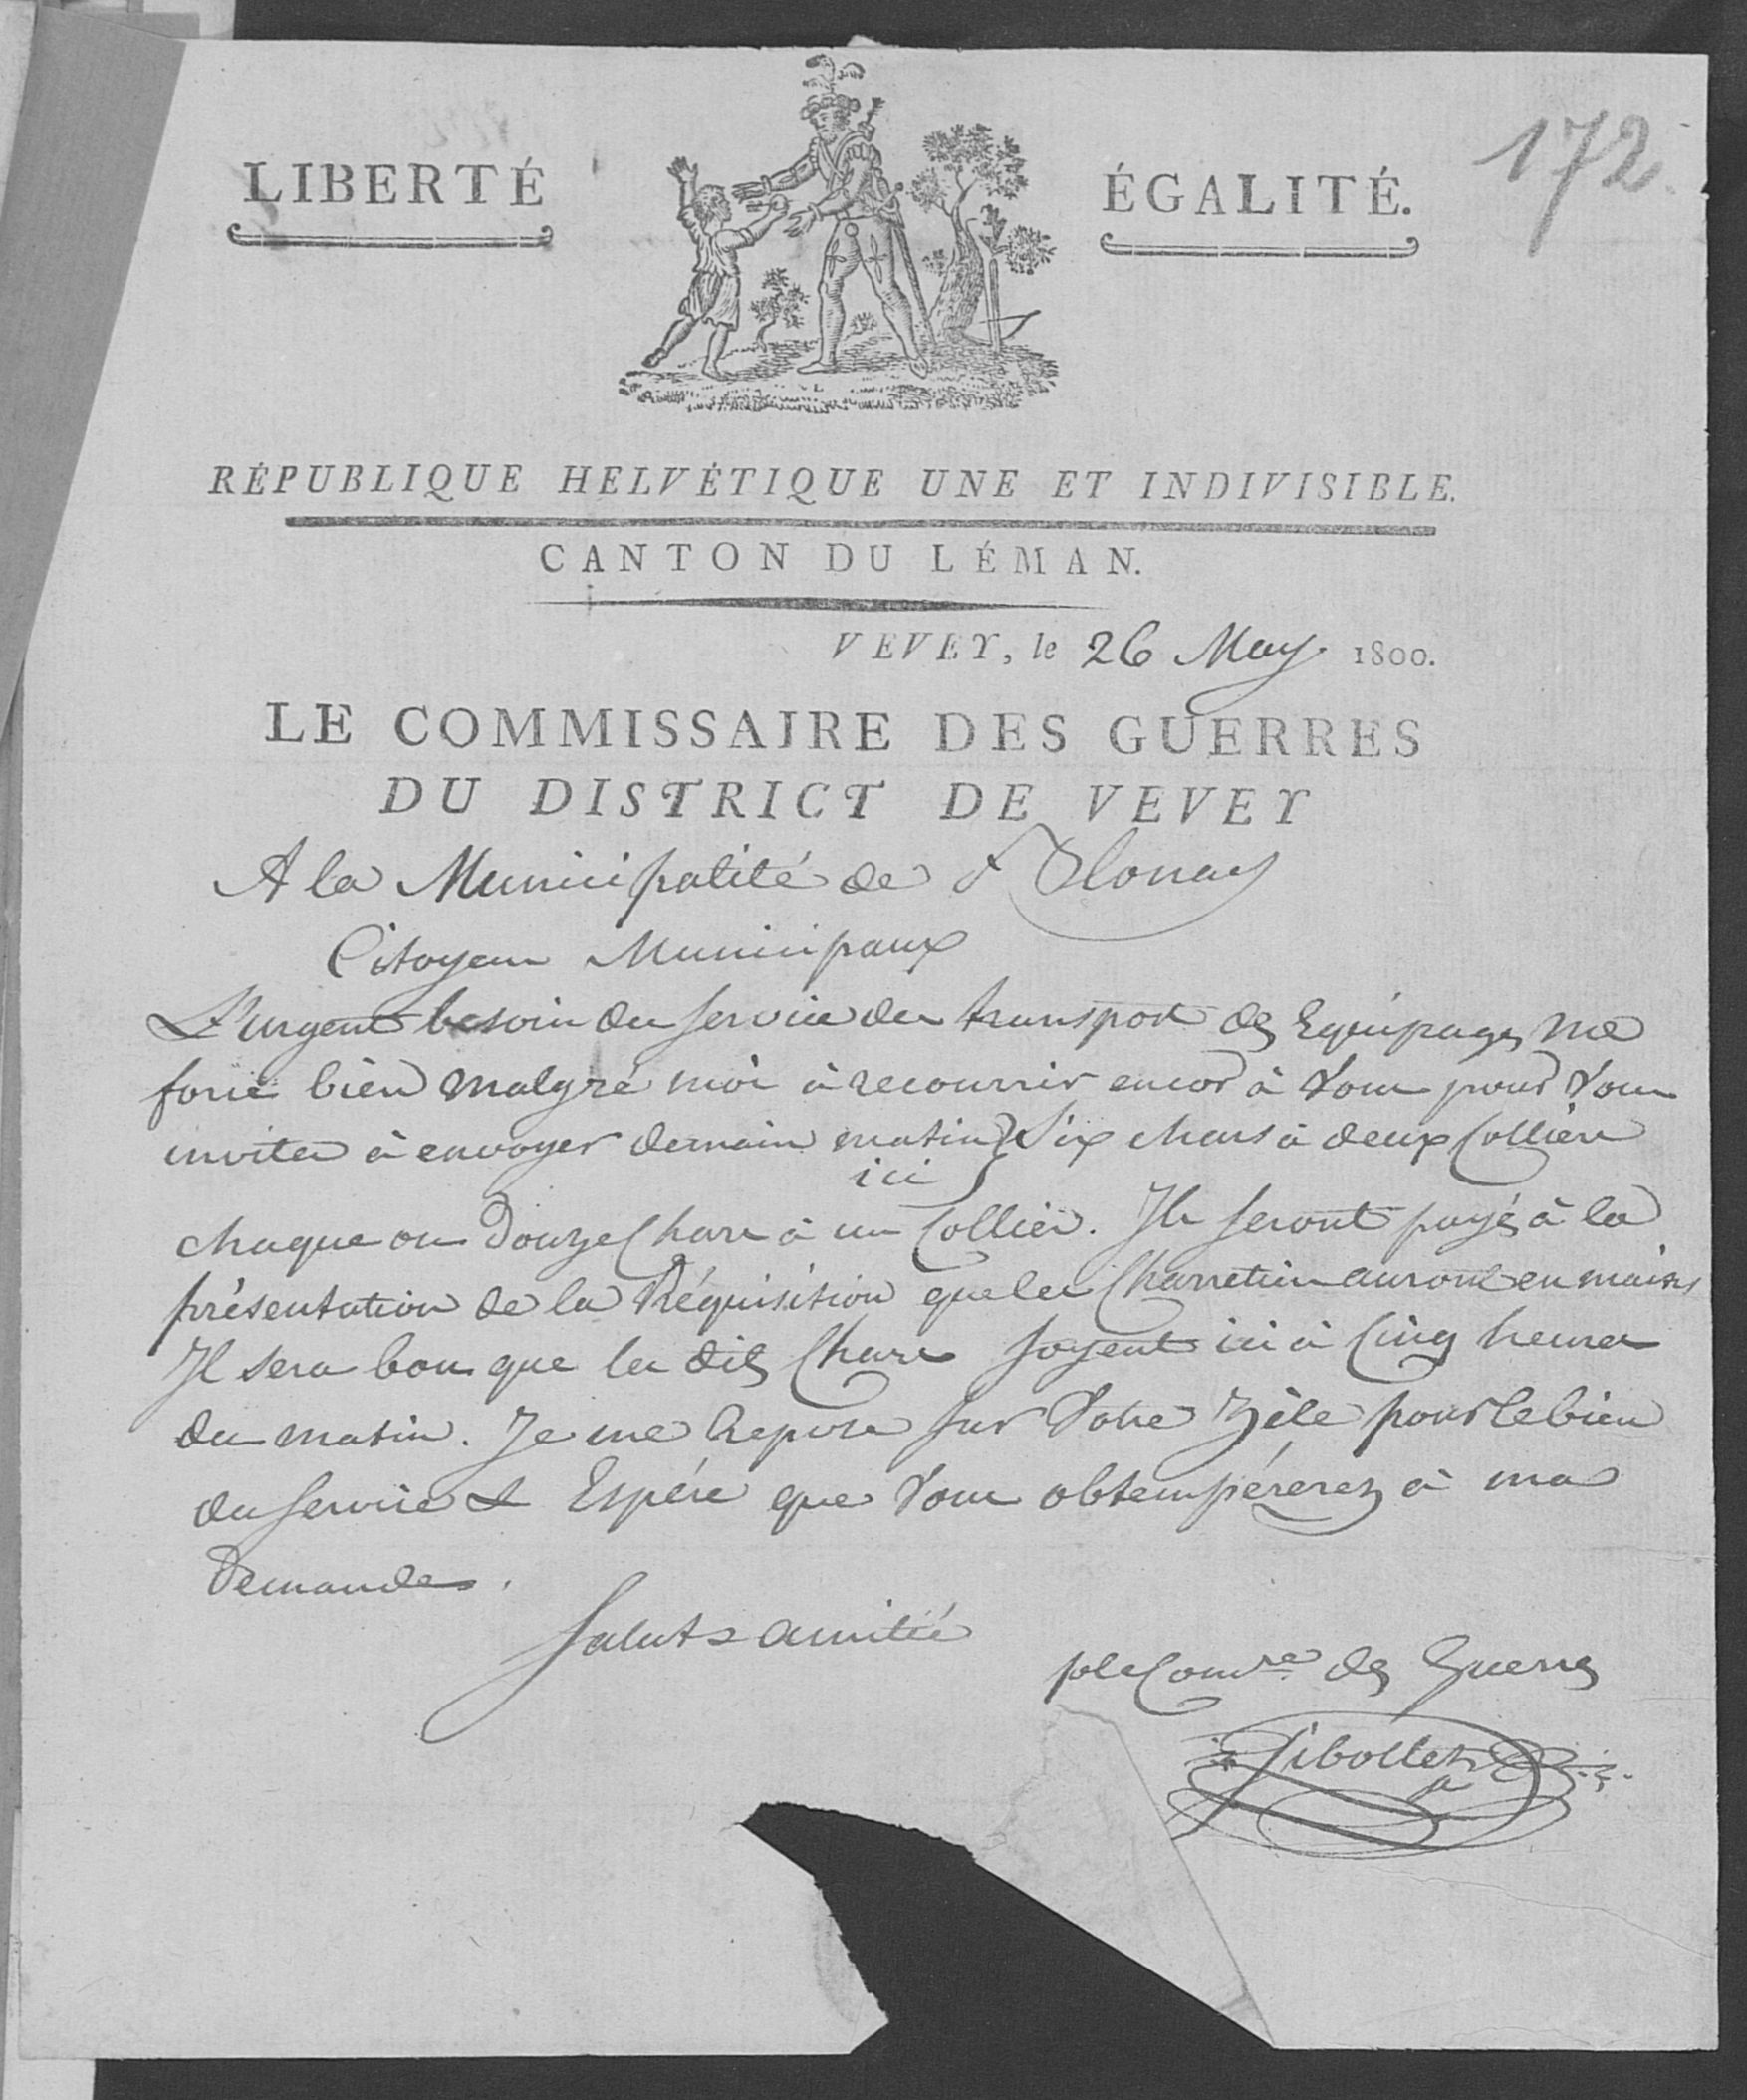 172
LIBERTÉ ÉGALITÉ.
RÉPUBLIQUE HELVÉTIQUE UNE ET INDIVISIBLE.
CANTON DU LÉMAN.
VEVEY, le 26 May 1800.
LE COMMISSAIRE DES GUERRES
DU DISTRICT DE VEVEY
A la Municipalité de Blonay
Citoyens Municipaux
L'urgent besoin du service des transport des Equipages me
force bien malgré moi à recourrir encor à Vous pour Vous
inviter à envoyer demain matin Six chars à deux Colliers
ici
chaque ou Douze Chars à un Collier. Ils seront payés à la
présentation de la Réquisition que les Charretiers auront en mains
Il sera bon que les dits Chars soyent ici à Cinq heures
du matin. Je me repose sur Votre Zèle pour le bien
du service & Espère que Vous obtempérerez à ma
Demande.
Salut & amitié
ple Comre des Guerres